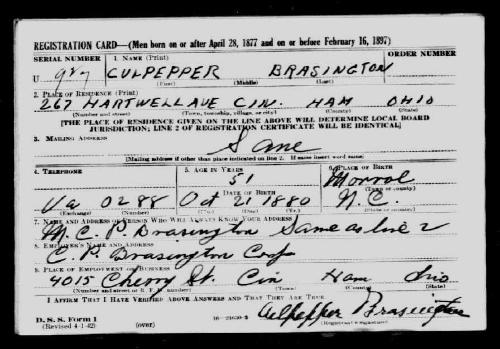 REGISTRATION CARD—(Men born on or after April 28, 1877 and on or before February 16, 1897)
SERIAL NUMBER 1. NAME (Print) ORDER NUMBER
U 927 CULPEPPER BRASINGTON
(First) (Middle) (Last)
2. PLACE OF RESIDENCE (Print)
267 HARTWELL AVE CIN. HAM OHIO
(Number and street) (Town, township, village, or city) (County) (State)
[THE PLACE OF RESIDENCE GIVEN ON THE LINE ABOVE WILL DETERMINE LOCAL BOARD
JURISDICTION; LINE 2 OF REGISTRATION CERTIFICATE WILL BE IDENTICAL]
3. MAILING ADDRESS
Same
[Mailing address if other than place indicated on line 2. If same insert word same]
4. TELEPHONE 5. AGE IN YEARS 6. PLACE OF BIRTH
Monroe
DATE OF BIRTH (Town or county)
Va 0288 Oct 21 1880 N.C.
(Exchange) (Number) (Mo.) (Day) (Yr.) (State or country)
7. NAME AND ADDRESS OF PERSON WHO WILL ALWAYS KNOW YOUR ADDRESS
M. C. P. Brasington Same as line 2
8. EMPLOYER'S NAME AND ADDRESS
C. P. Brasington Corp
9. PLACE OF EMPLOYMENT OR BUSINESS
4015 Cherry St. Cin Ham Ohio
(Number and street or R. F. D. number) (Town) (County) (State)
I AFFIRM THAT I HAVE VERIFIED ABOVE ANSWERS AND THAT THEY ARE TRUE.
Culpepper Brasington
D. S. S. Form 1
(Revised 4-1-42) (over) 16—21630-2 (Registrant's signature)